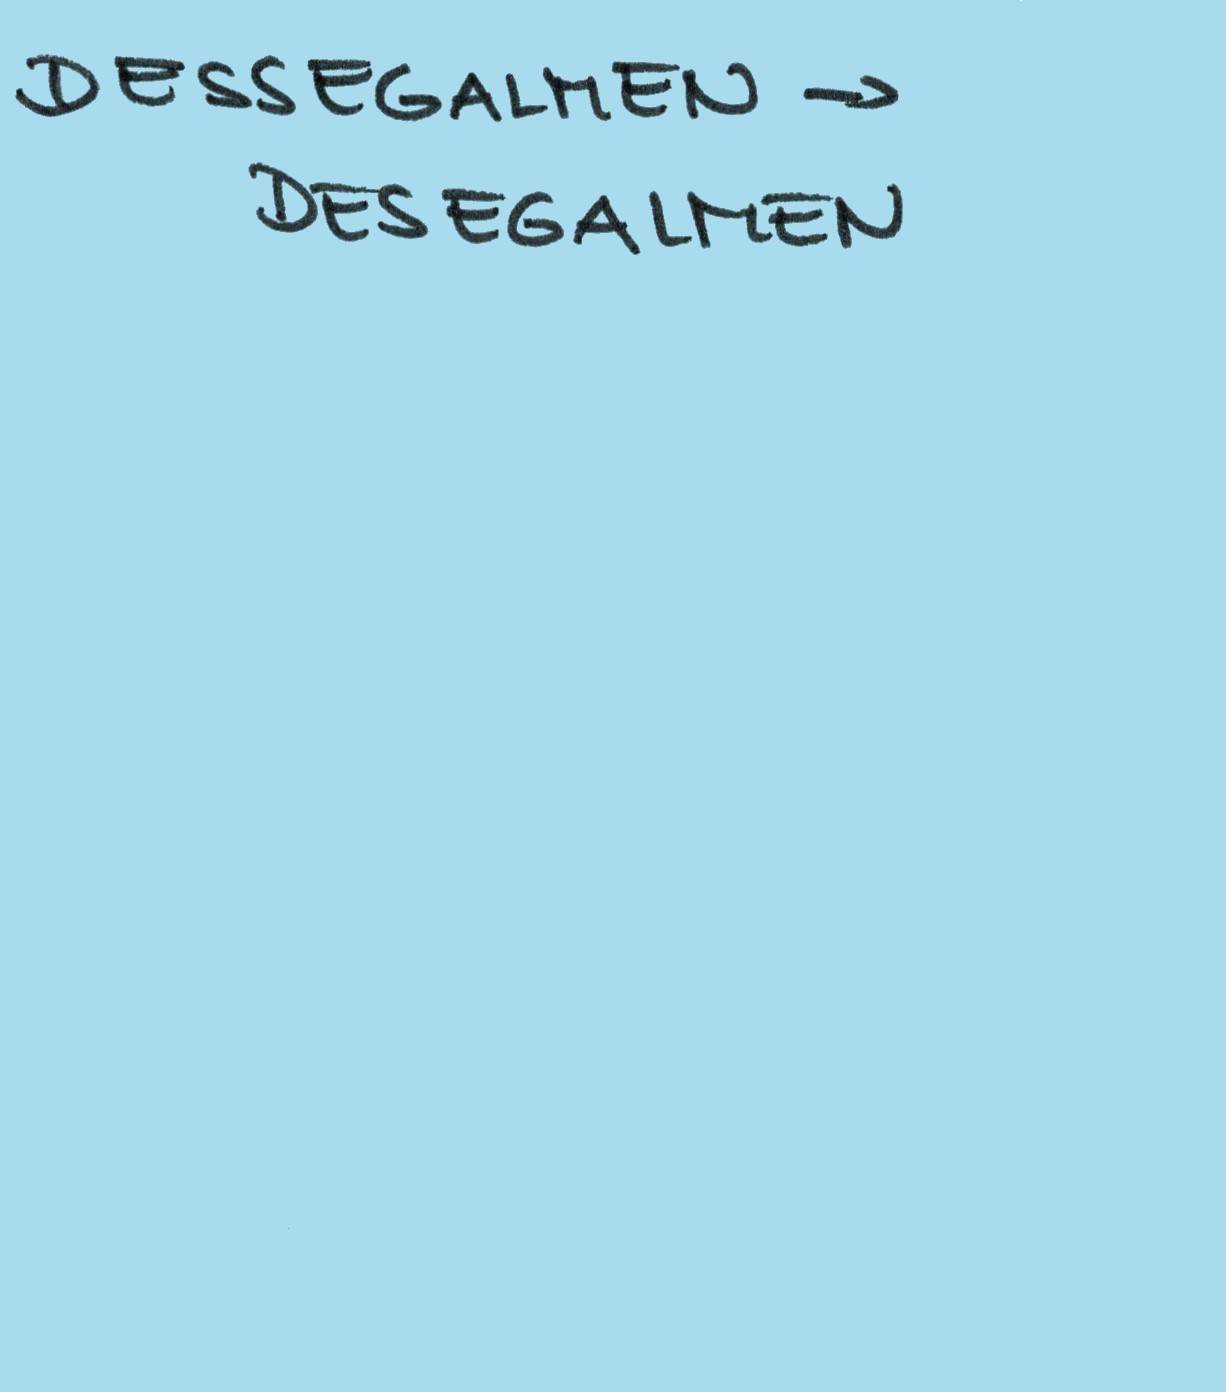 DESSEGALMEN →
DESEGALMEN